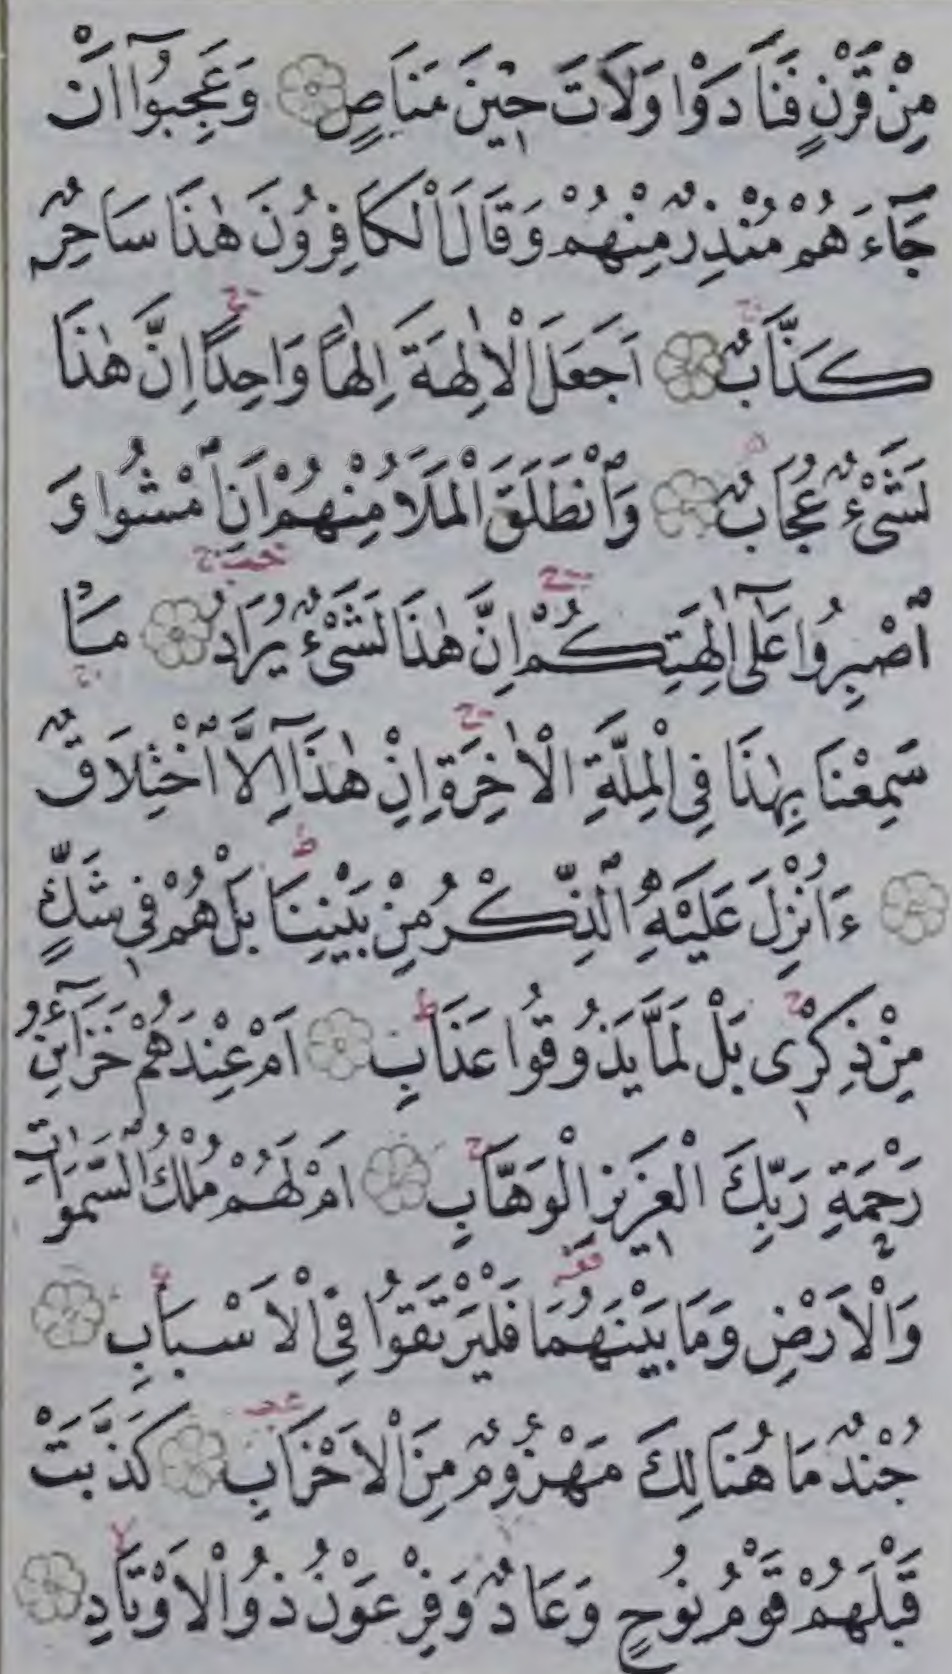 مِنْ قَرْنٍ فَنَادَوْا وَلَاتَ حٖينَ مَنَاصٍ ۝ وَعَجِبُٓوا اَنْ
جَٓاءَهُمْ مُنْذِرٌ مِنْهُمْ وَقَالَ الْكَافِرُونَ هٰذَا سَاحِرٌ
كَذَّابٌ ۝ اَجَعَلَ الْاٰلِهَةَ اِلٰهًا وَاحِدًا اِنَّ هٰذَا
لَشَیْءٌ عُجَابٌ ۝ وَٱنْطَلَقَ الْمَلَاُ مِنْهُمْ اَنِ ٱمْشُوا وَ
ٱصْبِرُوا عَلٰٓى اٰلِهَتِكُمْ اِنَّ هٰذَا لَشَیْءٌ يُرَادُ ۝ مَا
سَمِعْنَا بِهٰذَا فِى الْمِلَّةِ الْاٰخِرَةِ اِنْ هٰذَٓا اِلَّا ٱخْتِلَاقٌ
۝ ءَاُنْزِلَ عَلَيْهِ ٱلذِّكْرُ مِنْ بَيْنِنَا بَلْ هُمْ فٖى شَكٍّ
مِنْ ذِكْرٖى بَلْ لَمَّا يَذُوقُوا عَذَابِ ۝ اَمْ عِنْدَهُمْ خَزَٓائِنُ
رَحْمَةِ رَبِّكَ الْعَزٖيزِ الْوَهَّابِ ۝ اَمْ لَهُمْ مُلْكُ السَّمٰوَاتِ
وَالْاَرْضِ وَمَا بَيْنَهُمَا فَلْيَرْتَقُوا فِى الْاَسْبَابِ ۝
جُنْدٌ مَا هُنَالِكَ مَهْزُومٌ مِنَ الْاَحْزَابِ ۝ كَذَّبَتْ
قَبْلَهُمْ قَوْمُ نُوحٍ وَعَادٌ وَفِرْعَوْنُ ذُو الْاَوْتَادِ ۝